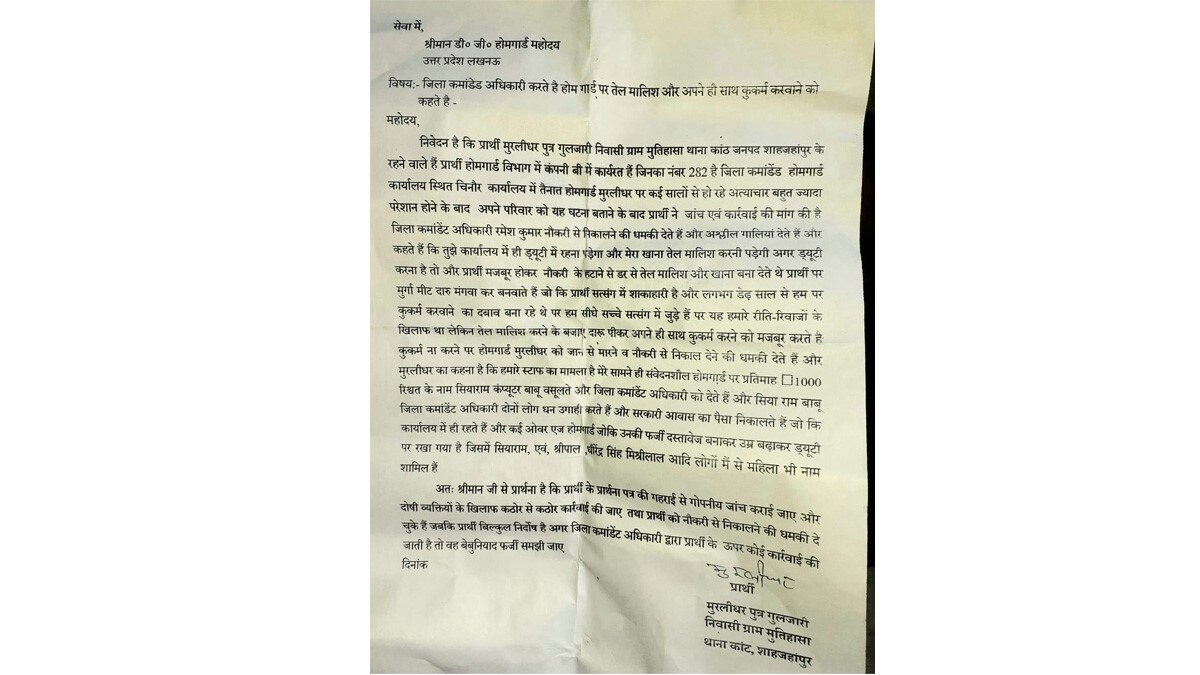 सेवा में,
श्रीमान डी० जी० होमगार्ड महोदय
उत्तर प्रदेश लखनऊ
विषय:- जिला कमांडेड अधिकारी करते है होम गार्ड पर तेल मालिश और अपने ही साथ कुकर्म करवाने को
कहते है -
महोदय,
निवेदन है कि प्रार्थी मुरलीधर पुत्र गुलजारी निवासी ग्राम मुतिहासा थाना कांठ जनपद शाहजहांपुर के
रहने वाले हैं प्रार्थी होमगार्ड विभाग में कंपनी बी में कार्यरत हैं जिनका नंबर 282 है जिला कमांडेंड होमगार्ड
कार्यालय स्थित चिनौर कार्यालय में तैनात होमगार्ड मुरलीधर पर कई सालों से हो रहे अत्याचार बहुत ज्यादा
परेशान होने के बाद अपने परिवार को यह घटना बताने के बाद प्रार्थी ने जांच एवं कार्रवाई की मांग की है
जिला कमांडेंट अधिकारी रमेश कुमार नौकरी से निकालने की धमकी देते हैं और अश्लील गालियां देते हैं और
कहते हैं कि तुझे कार्यालय में ही ड्यूटी में रहना पड़ेगा और मेरा खाना तेल मालिश करनी पड़ेगी अगर ड्यूटी
करना है तो और प्रार्थी मजबूर होकर नौकरी के हटाने से डर से तेल मालिश और खाना बना देते थे प्रार्थी पर
मुर्गा मीट दारु मंगवा कर बनवाते हैं जो कि प्रार्थी सत्संग में शाकाहारी है और लगभग डेढ़ साल से हम पर
कुकर्म करवाने का दबाव बना रहे थे पर हम सीधे सच्चे सत्संग में जुड़े हैं पर यह हमारे रीति-रिवाजों के
खिलाफ था लेकिन तेल मालिश करने के बजाए दारू पीकर अपने ही साथ कुकर्म करने को मजबूर करते है
कुकर्म ना करने पर होमगार्ड मुरलीधर को जान से मारने व नौकरी से निकाल देने की धमकी देते हैं और
मुरलीधर का कहना है कि हमारे स्टाफ का मामला है मेरे सामने ही संवेदनशील होमगार्ड पर प्रतिमाह □1000
रिश्वत के नाम सियाराम कंप्यूटर बाबू वसूलते और जिला कमांडेंट अधिकारी को देते हैं और सिया राम बाबू
जिला कमांडेंट अधिकारी दोनों लोग धन उगाही करते हैं और सरकारी आवास का पैसा निकालते हैं जो कि
कार्यालय में ही रहते हैं और कई ओवर एज होमगार्ड जोकि उनकी फर्जी दस्तावेज बनाकर उम्र बढ़ाकर ड्यूटी
पर रखा गया है जिसमें सियाराम, एवं, श्रीपाल ,धीरेंद्र सिंह मिश्रीलाल आदि लोगों मैं से महिला भी नाम
शामिल हैं
अतः श्रीमान जी से प्रार्थना है कि प्रार्थी के प्रार्थना पत्र की गहराई से गोपनीय जांच कराई जाए और
दोषी व्यक्तियों के खिलाफ कठोर से कठोर कार्रवाई की जाए तथा प्रार्थी को नौकरी से निकालने की धमकी दे
चुके हैं जबकि प्रार्थी बिल्कुल निर्दोष है अगर जिला कमांडेंट अधिकारी द्वारा प्रार्थी के ऊपर कोई कार्रवाई की
जाती है तो वह बेबुनियाद फर्जी समझी जाए
दिनांक
प्रार्थी
मुरलीधर पुत्र गुलजारी
निवासी ग्राम मुतिहासा
थाना कांट, शाहजहांपुर